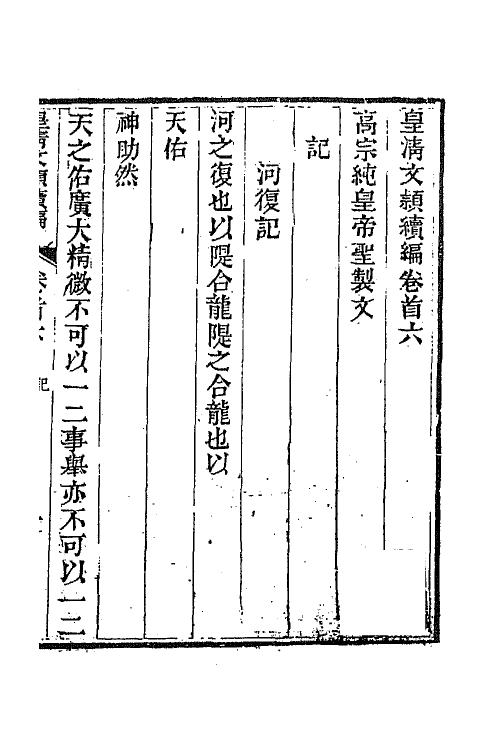 皇清文穎續編卷首六
高宗純皇帝聖製文
記
河復記
河之復也以隄合龍隄之合龍也以
天佑
神助然
天之佑廣大精微不可以一二事舉亦不可以一二
皇清文穎續編
卷首六
記